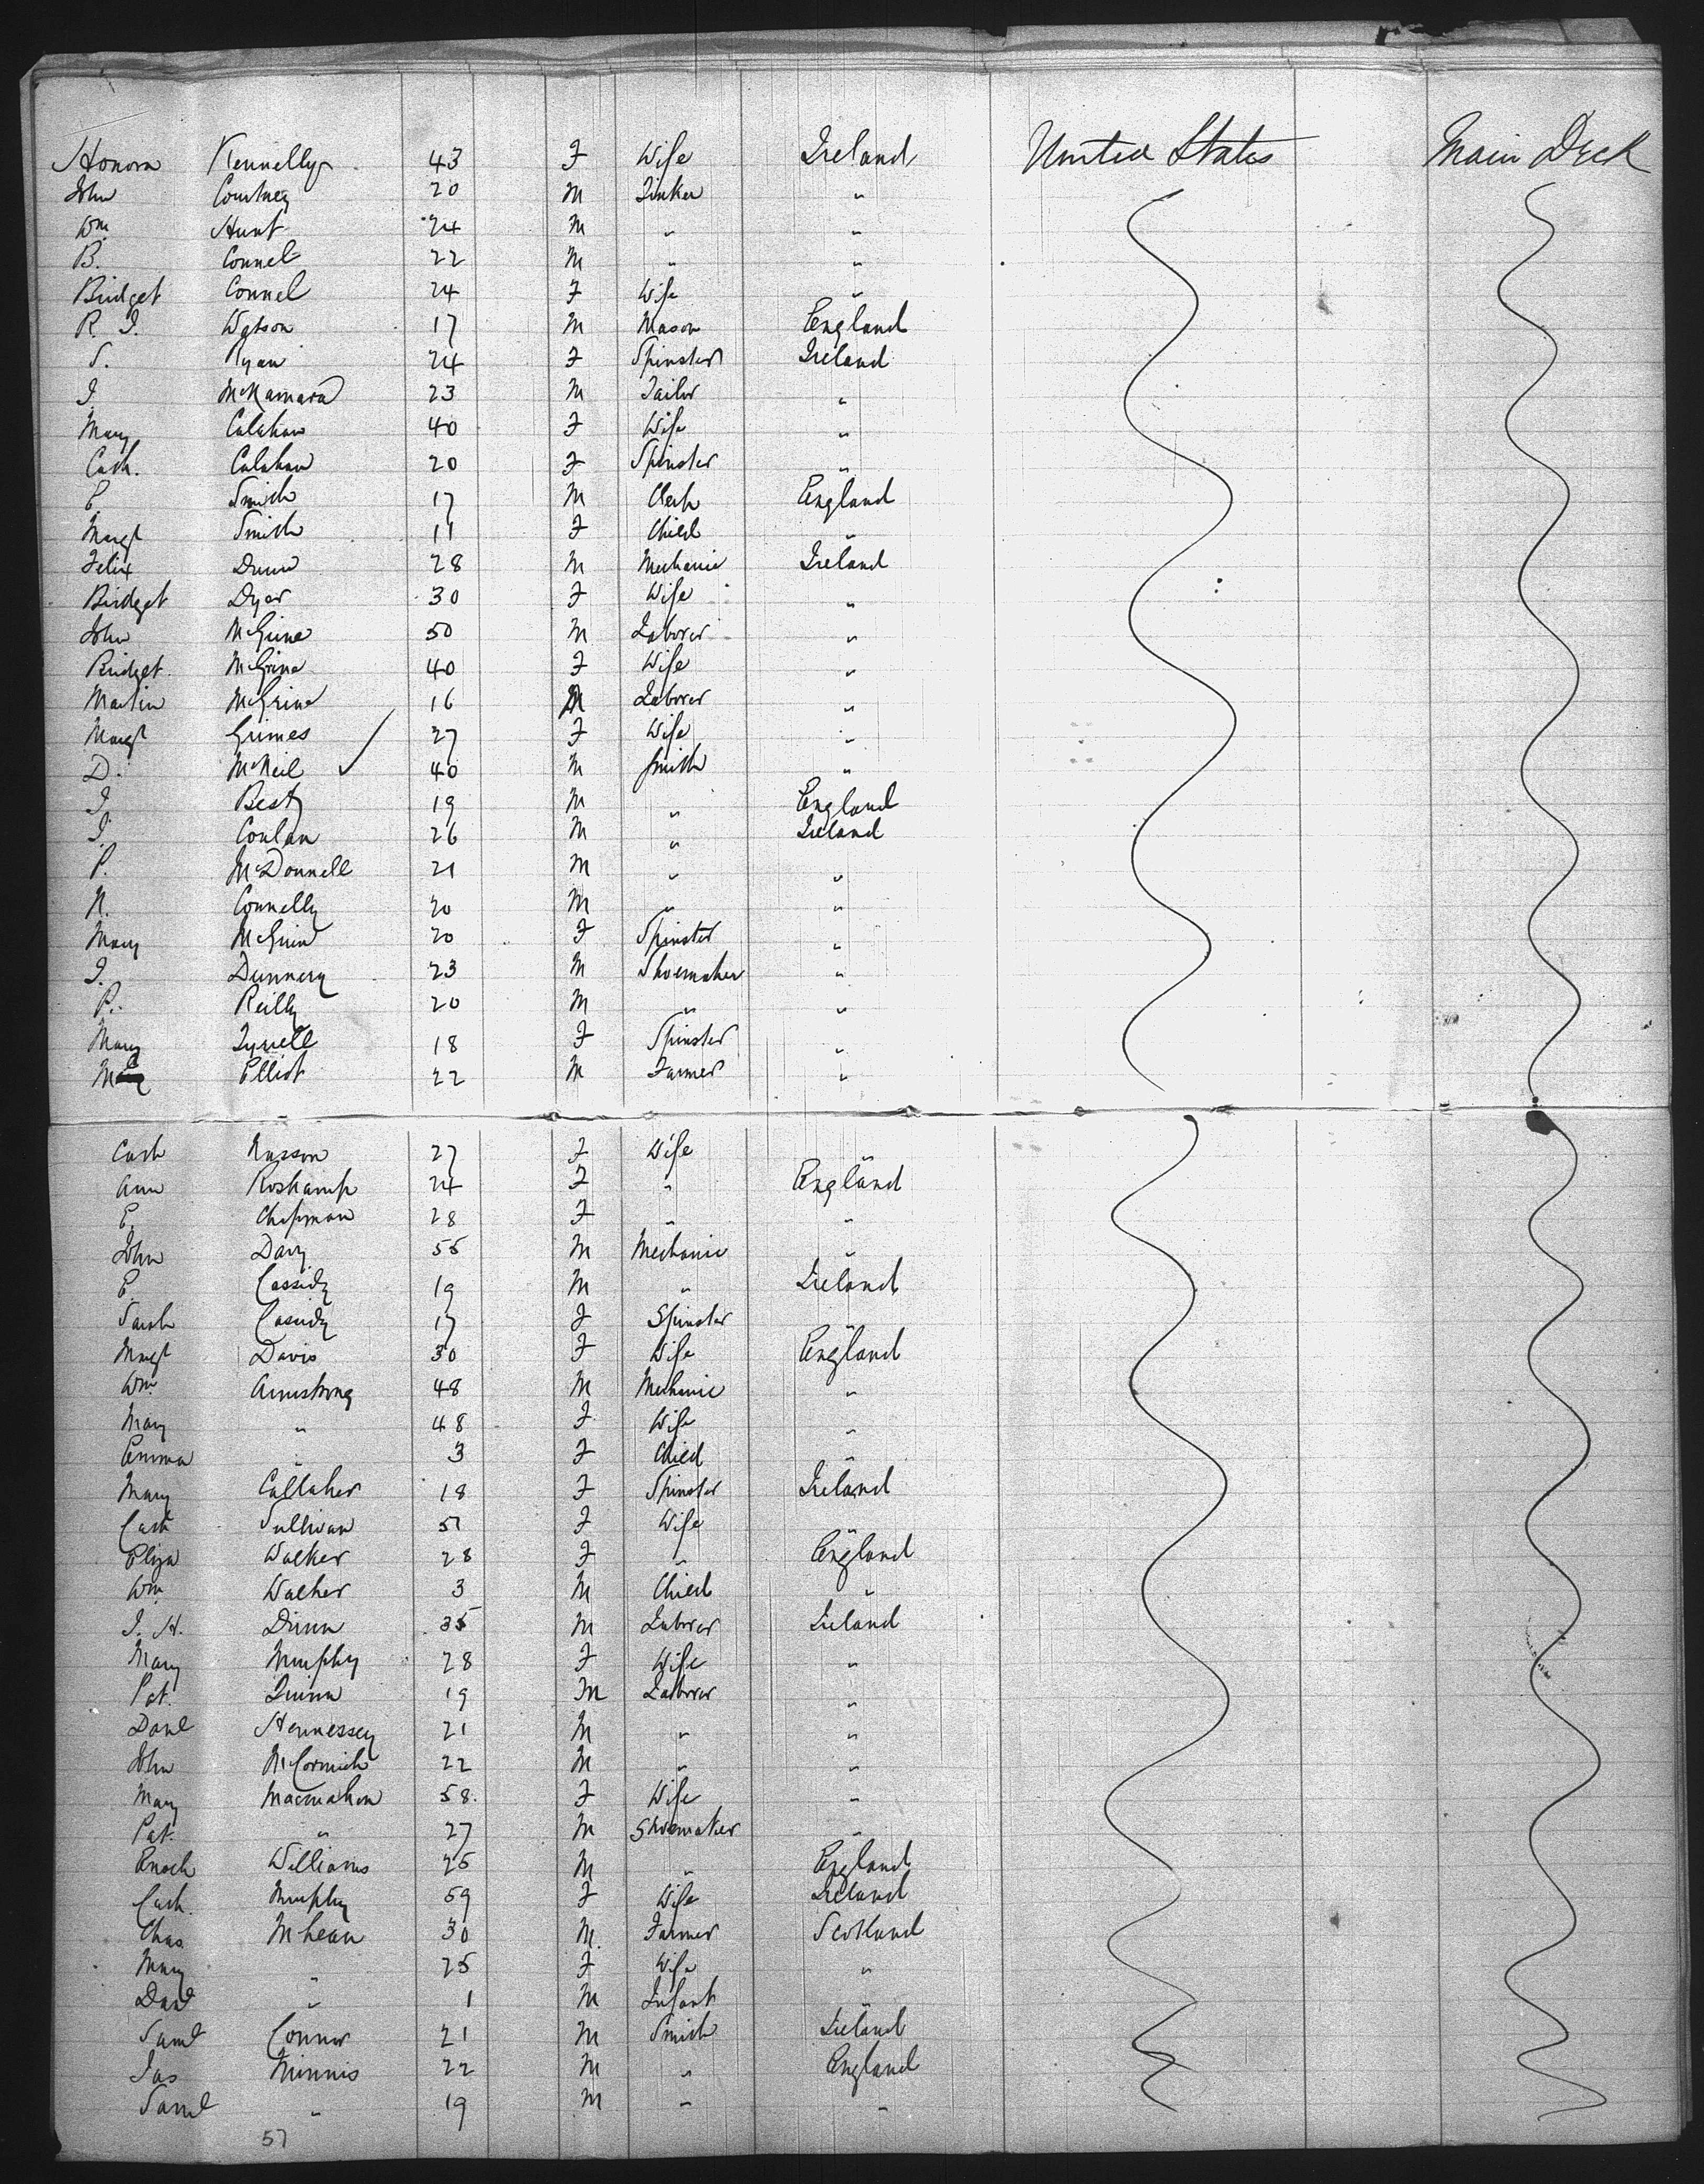 Honora Kennelly 43 F Wife Ireland United States Main Deck
John Courtney 20 M Tinker "
Wm. Hunt 24 M " "
B. Connel 22 M " "
Bridget Connel 24 F Wife "
R. I. Watson 17 M Mason England
S. Ryan 24 F Spinster Ireland
I. McNamara 23 M Tailor "
Mary Calahan 40 F Wife "
Cath. Calahan 20 F Spinster "
E. Smith 17 M Clerk England
Margt Smith 11 F Child "
Felix Drum 28 M Mechanic Ireland
Bridget Dyer 30 F Wife "
John 50 M Laborer "
Bridget. 40 F Wife "
Martin 16 M Laborer "
Margt Grimes 27 F Wife "
D. McNeil ✓ 40 M Smith "
I. Best 19 M " England
I. Conlan 26 M " Ireland
P. McDonnell 21 M " "
N. Connelly 20 M " "
Mary 20 F Spinster "
I. Dunnery 23 M Shoemaker "
P. Reilly 20 M " "
Mary Tyrrell 18 F Spinster "
Elliot 22 M Farmer "
Cath 27 F Wife "
Ann Roskamp 24 F " England
E. Chapman 28 F " "
John Davy 55 M Mechanic "
E. Cassidy 19 M " Ireland
Sarah Cassidy 17 F Spinster "
Margt Davis 30 F Wife England
Wm Armstrong 48 M Mechanic "
Mary " 48 F Wife "
Emma " 3 F Child "
Mary Callaher 18 F Spinster Ireland
Cath Sullivan 51 F Wife "
Eliza Walker 28 F " England
Wm Walker 3 M Child "
I. H. Dunn 35 M Laborer Ireland
Mary Murphy 28 F Wife "
Pat. Quinn 19 M Laborer "
Danl Hennessey 21 M " "
John McCormick 22 M " "
Mary Macmahon 58. F Wife "
Pat. " 27 M Shoemaker "
Enoch Williams 25 M " England
Cath. Murphy 59 F Wife Ireland
Chas McLean 30 M. Farmer Scotland
Mary " 25 F Wife "
Davd " 1 M Infant "
Saml Connor 21 M Smith Ireland
Jas Ninnis 22 M " England
Saml " 19 M " "
57